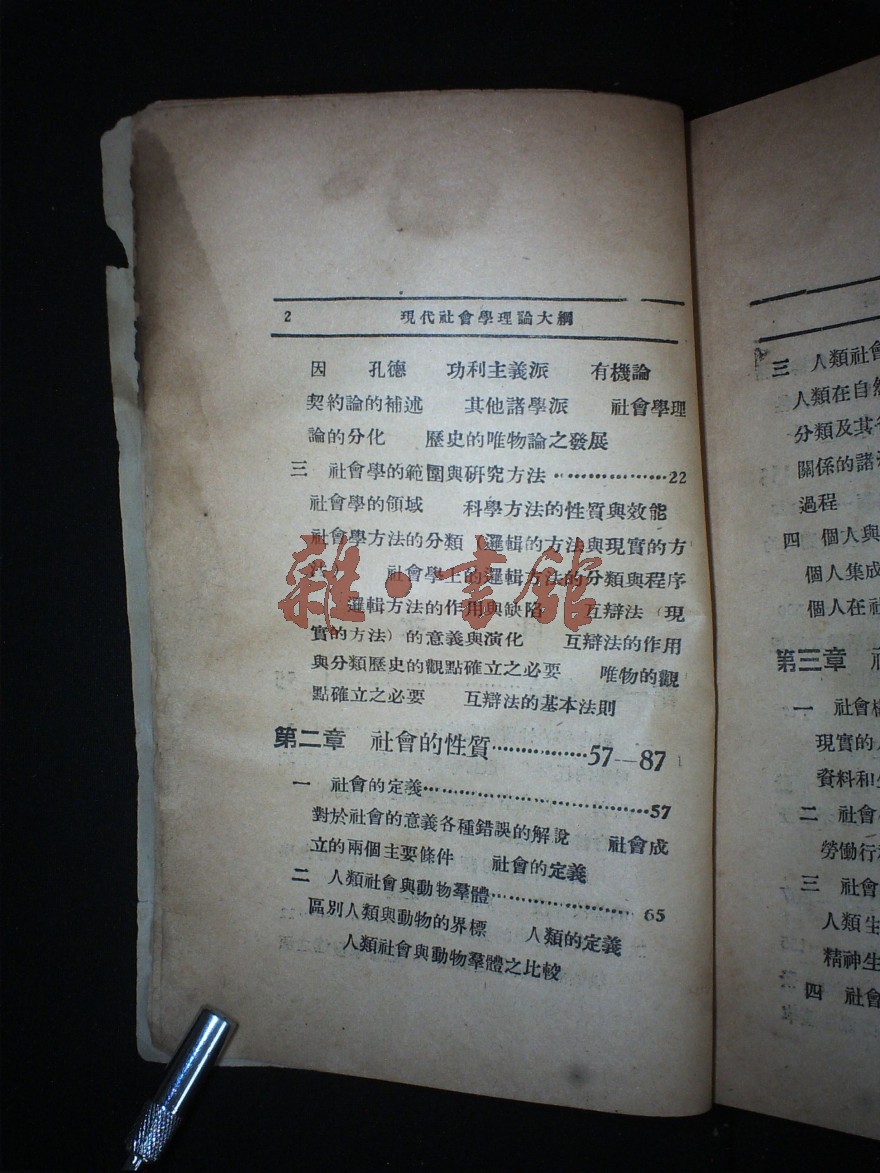 2 現代社會學理論大綱
因 孔德 功利主義派 有機論
契約論的補述 其他諸學派 社會學理
論的分化 歷史的唯物論之發展
三 社會學的範圍與研究方法………………22
社會學的領域 科學方法的性質與效能
社會學方法的分類（邏輯的方法與現實的方
社會學上的邏輯方法的分類與程序
邏輯方法的作用與缺陷 互辯法（現
實的方法）的意義與演化 互辯法的作用
與分類歷史的觀點確立之必要 唯物的觀
點確立之必要 互辯法的基本法則
第二章 社會的性質……………57—87
一 社會的定義……………………………57
對於社會的意義各種錯誤的解說 社會成
立的兩個主要條件 社會的定義
二 人類社會與動物羣體………………65
區別人類與動物的界標 人類的定義
人類社會與動物羣體之比較
雜·書館
三 人類社會
人類在自然
分類及其各
關係的諸
過程
四 個人與
個人集成
個人在社
第三章 社
一 社會
現實的
資料和
二 社會
勞働行
三 社會
人類生
精神生
四 社會